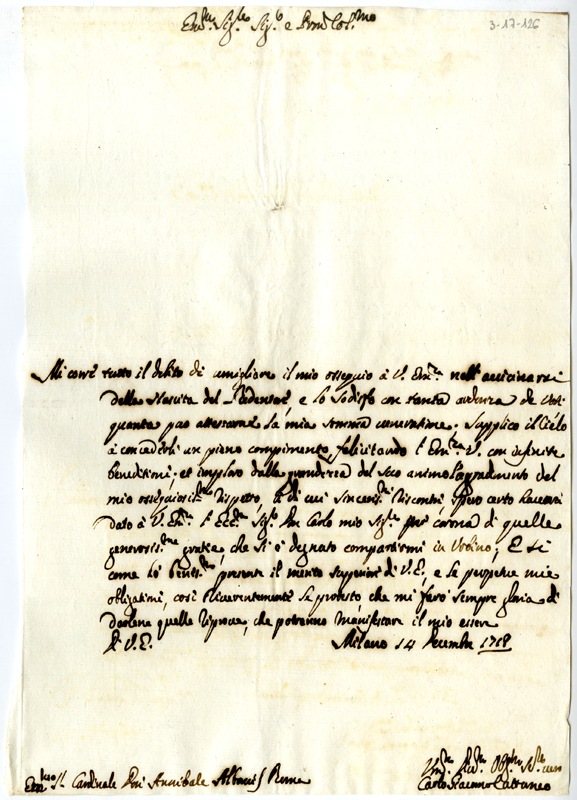 3-17-126
Em.mo Sig.re Sig.r e Pron Col.mo
Mi corre tutto il debito di umigliare il mio ossequio à V. Em.za nell'avicinarsi
della Nascita del Redentore e lo sodisfo con tanta ardenza de Voti
quanta può attestarne la mia somma veneratione. Supplico il Cielo
à concederli un pieno compimento, felicitando l'Em.za V. con infinite
beneditioni, et imploro dalla grandezza del Suo animo l'agradimento del
mio ossequiosis.mo rispetto, di cui sinceris.mi riscontri, spero certo haverà
dato à V. Em.za l'Ecc.mo Sig.r Don Carlo mio Sig.re per corona di quelle
generosis.me gratie che si è degnato compartirmi in Urbino; E si
come hò presente il merito superiore di V. E., e le perpetue mie
obligationi, così riverentemente la protesto che mi farò sempre gloria di
darlene quelle riprove, che potranno manifestare il mio essere
Di V. E.
Milano 14 Decembre 1718
Em.mo S.r Cardinale Don Annibale Albani Roma
Um.mo Dev.mo Obl.mo Ser.re vero
Carlo Giacomo Cattaneo